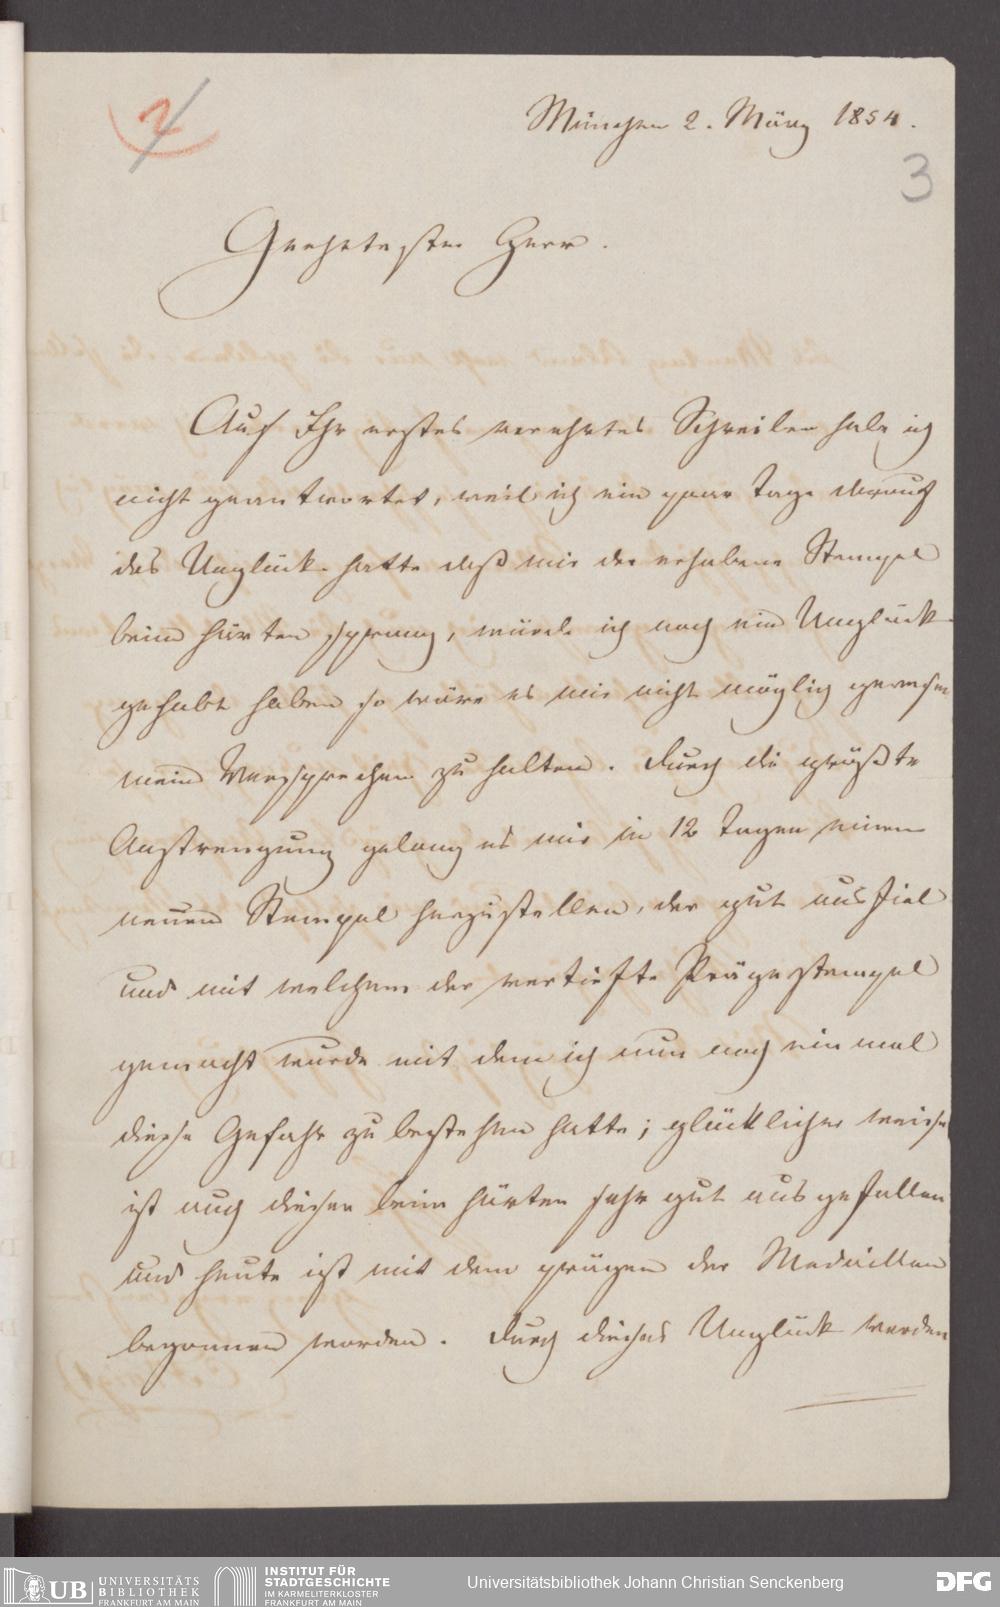 2
München 2. März 1854.
3
Geehrtester Herr.
Auf Ihr erstes verehrtes Schreiben habe ich
nicht geantwortet, weil ich ein paar Tage darauf
das Unglück hatte daß mir der erhabene Stempel
beim härten sprang, würde ich noch ein Unglück
gehabt haben so wäre es mir nicht möglich gewesen
mein Versprechen zu halten. Durch die größte
Anstrengung gelang es mir in 12 Tagen einen
neuen Stempel herzustellen, der gut ausfiel
und mit welchem der vertiefte Prägestempel
gemacht wurde mit dem ich nun noch einmal
diese Gefahr zu bestehen hatte; glücklicher weise
ist auch dieser beim härten sehr gut ausgefallen
und heute ist mit dem prägen der Medaillen
begonnen worden. Durch dieses Unglück werden
UB UNIVERSITÄTS
BIBLIOTHEK
FRANKFURT AM MAIN
INSTITUT FÜR
STADTGESCHICHTE
IM KARMELITERKLOSTER
FRANKFURT AM MAIN
Universitätsbibliothek Johann Christian Senckenberg
DFG